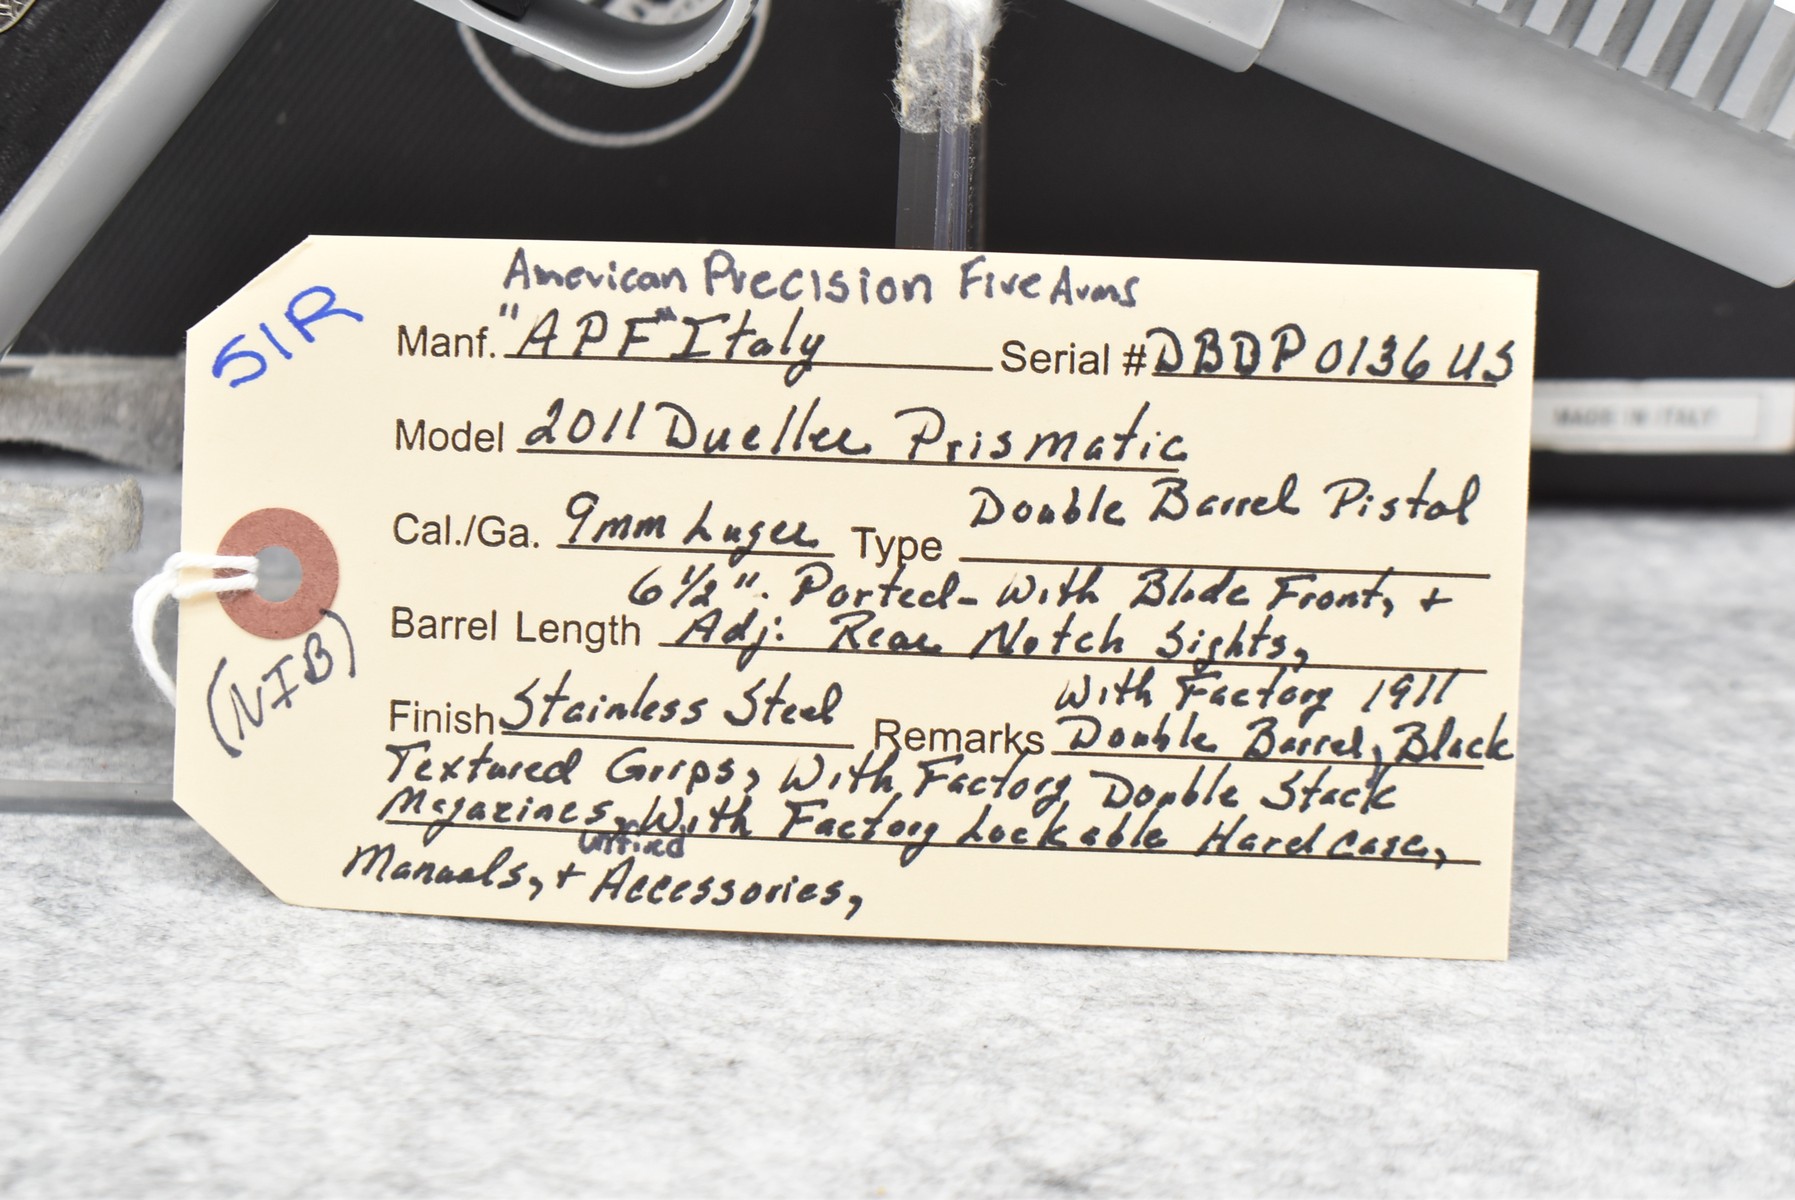 SIR
American Precision Fire Arms
Manf. "APF" Italy Serial # DBDP0136US
Model 2011 Dueller Prismatic
Cal./Ga. 9mm Luger Type Double Barrel Pistol
6 1/2". Ported - With Blade Front, +
Barrel Length Adj: Rear Notch Sights,
(NIB)
With Factory 1911
Finish Stainless Steel Remarks Double Barrel, Black
Textured Grips, With Factory Double Stack
Magazines, With Factory Lockable Hard Case,
unfired
Manuals, + Accessories,
MADE IN ITALY